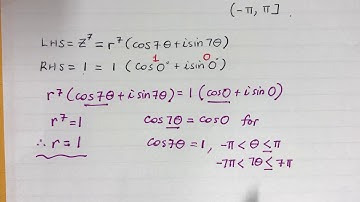 (-π, π].
LHS = z⁷ = r⁷(cos7θ + i sin 7θ)
RHS = 1 = 1 (cos0° + i sin0°)
1 0
r⁷(cos7θ + i sin7θ) = 1 (cos0 + i sin0)
r⁷ = 1 cos7θ = cos0 for
∴ r = 1 cos7θ = 1, -π < θ ≤ π
-7π < 7θ ≤ 7π